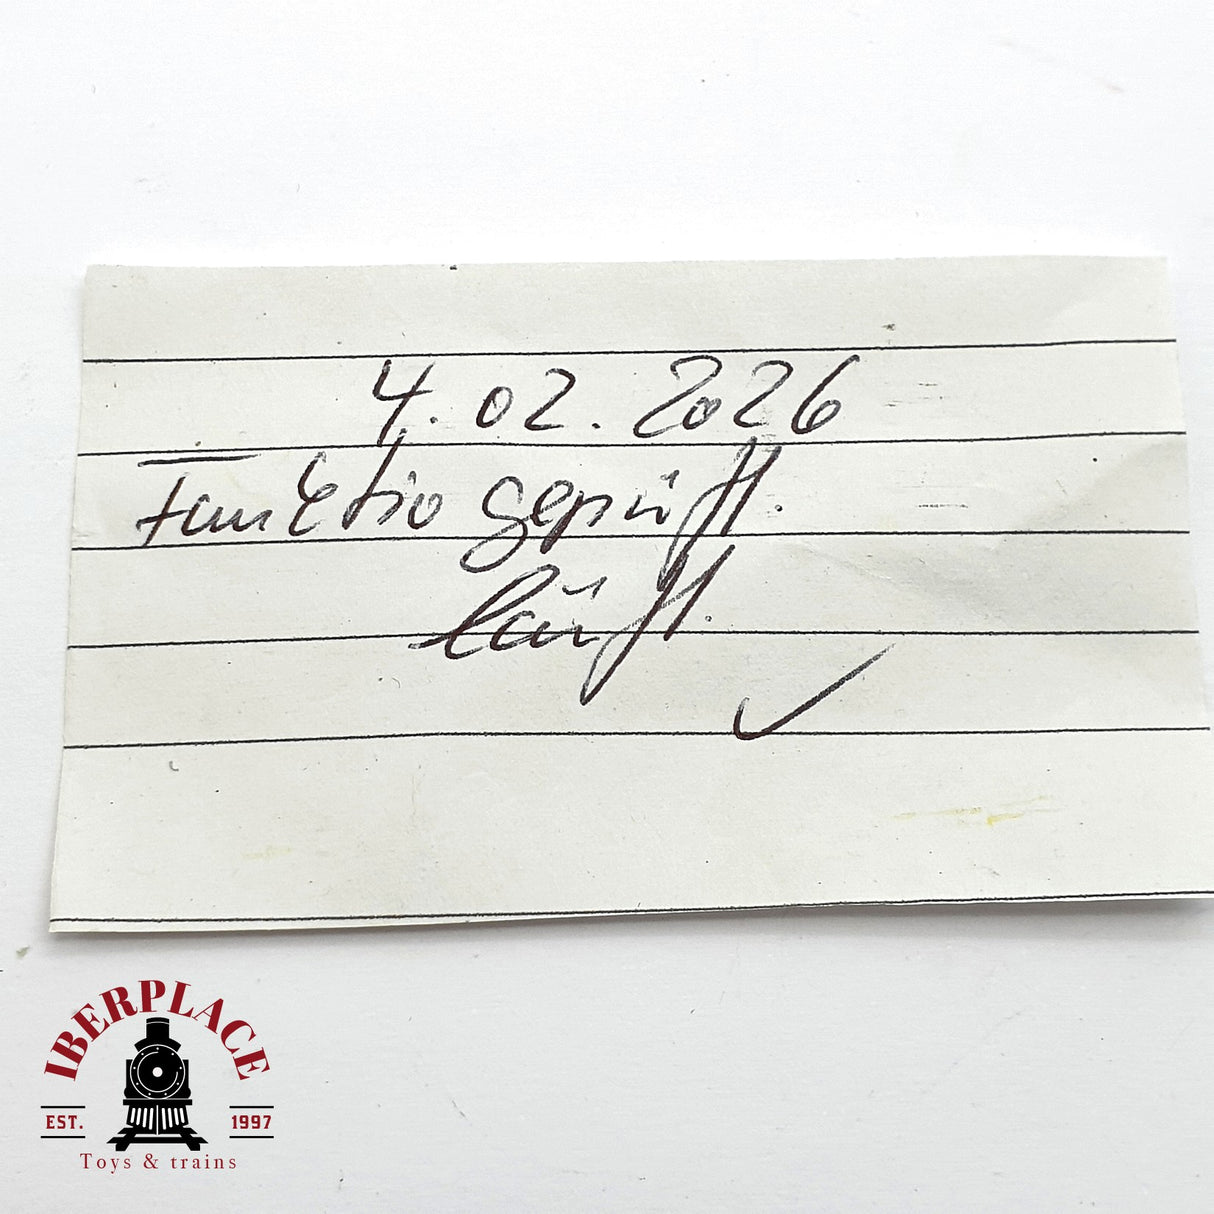 4.02.2026
Funktio geprüft.
läuft.
IBERPLACE
EST. 1997
Toys & trains